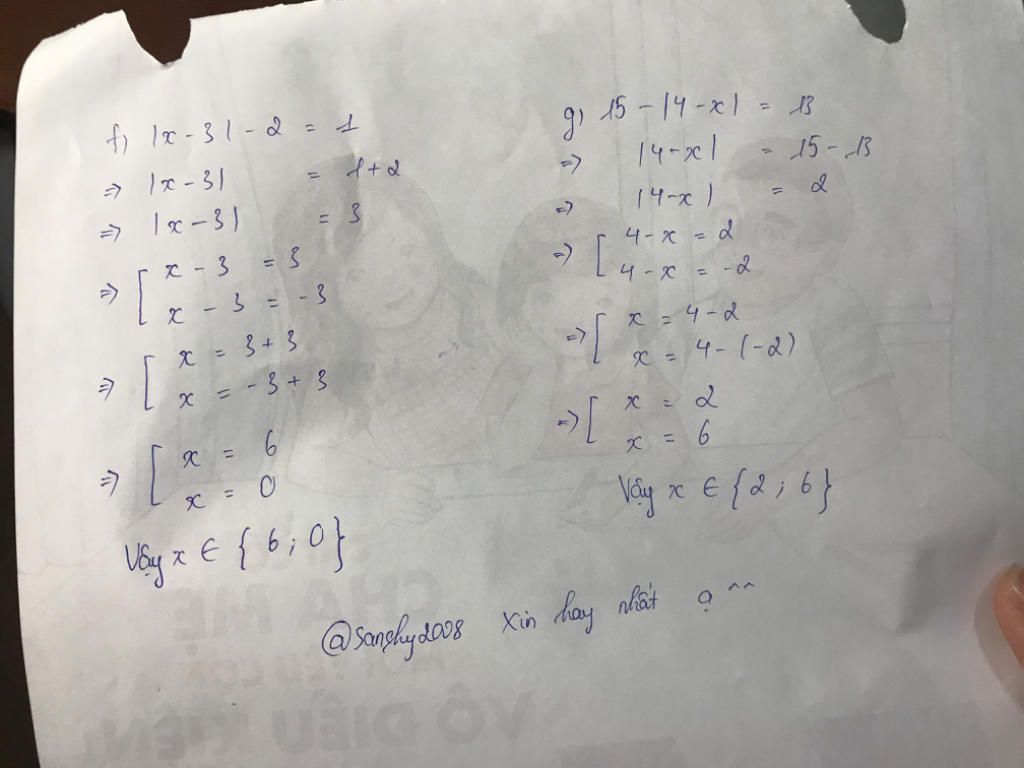 f) |x - 3| - 2 = 1
=> |x - 3| = 1 + 2
=> |x - 3| = 3
=> [ x - 3 = 3
x - 3 = -3
=> [ x = 3 + 3
x = -3 + 3
=> [ x = 6
x = 0
Vậy x ∈ { 6 ; 0 }
g) 15 - |4 - x| = 13
=> |4 - x| = 15 - 13
=> |4 - x| = 2
=> [ 4 - x = 2
4 - x = -2
=> [ x = 4 - 2
x = 4 - (-2)
=> [ x = 2
x = 6
Vậy x ∈ { 2 ; 6 }
@sanghy2008 xin hay nhất ạ ^^
CHA MẸ
VÔ ĐIỀU KIỆN